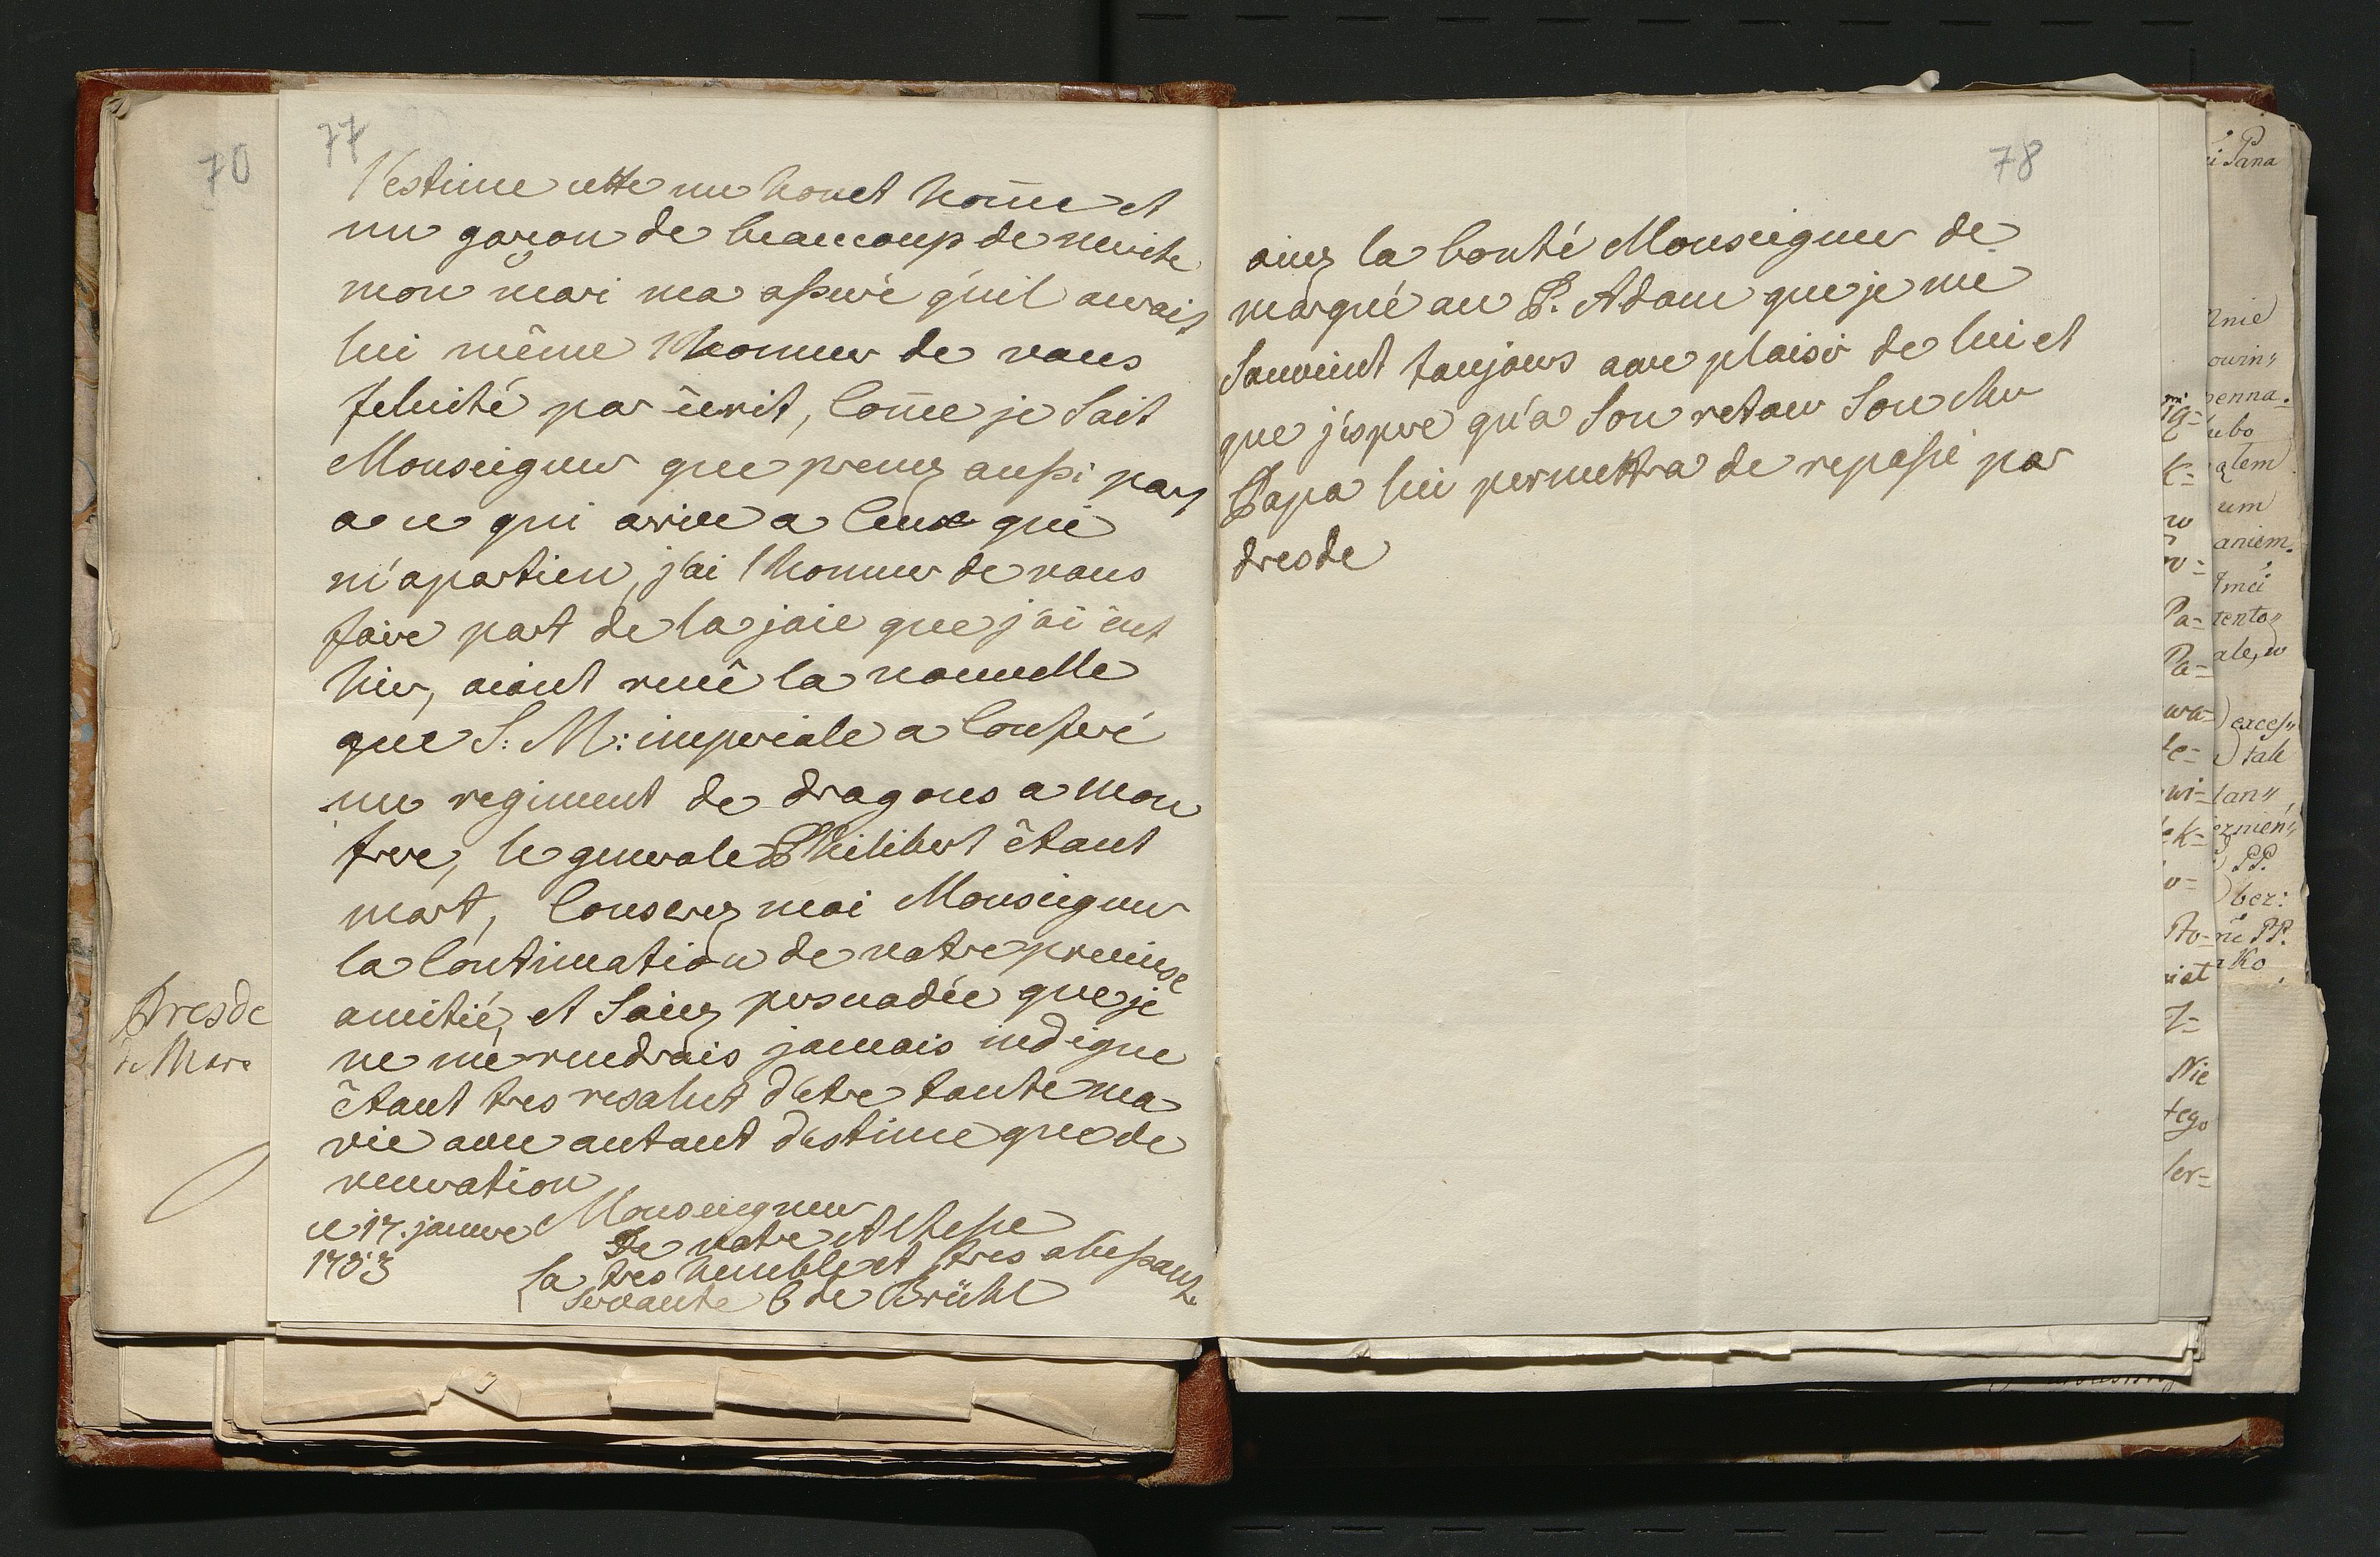 70
77
l'estime cette un honet hom̄e et
un garcon de beaucoup de merite
mon mari ma assuré qúil aurais
lui même l'honneur de vous
felicité par êcrit, Com̄e je sait
Monseigneur que prenez aussi part
a ce qui arive a Ceux qui
m'apartien, j'ai l'honneur de vous
faire part de la joie que j'ai êut
hier, aiant recuê la nouvelle
que S: M: imperiale a Conferé
un regiment de dragons a mon
frere, le generale Philibert êtant
mort, Conserez moi Monseigneur
la Continuation de votre pretieuse
amitié, et Soiez persuadée que je
ne me rendrais jamais indigne
êtant tres resolut d'etre toute ma
vie avec autant d'estime que de
veneration
Monseigneur
ce 17. janvre De votre Altesse
1753 la tres humble et tres obeissante
Servante C de Brühl
Dresde
Mars
78
aiez la bonté Monseigneur de
marqué au P. Adam que je me
Souvient toujours avec plaisir de lui et
que j'espere qu'a Son retour Son cher
Papa lui permettra de repassé par
dresde
i Pana